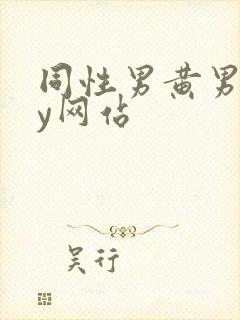 同性男黄男
y网佔
吴行